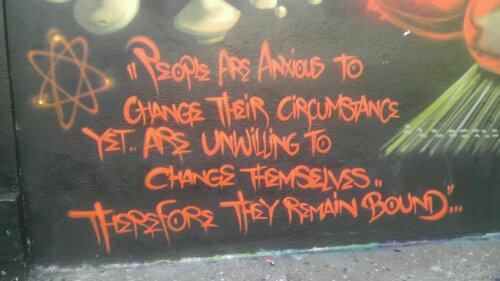 "People Are Anxious To
Change Their Circumstance
Yet.. Are Unwilling To
Change Themselves..
Therefore They Remain Bound"...